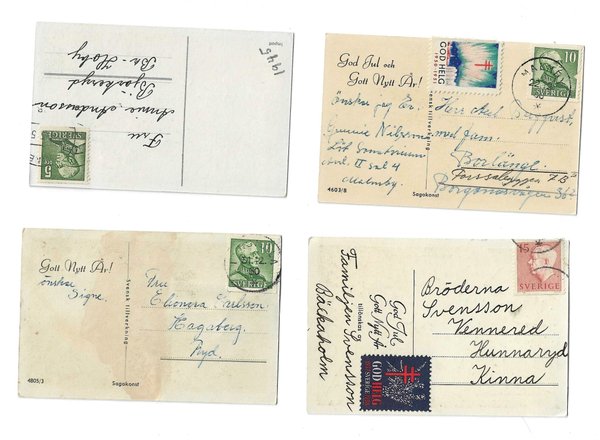 Import
1945
Fru
Annie Andersson
Bjärkeryd
Br-Hoby
5
SVERIGE
God Jul och
Gott Nytt År!
GOD HELG
SVERIGE
10
önskar jag Er.
Gunnie Nilsson
Avd. II sal 4
Malmby.
4603/8
Svensk tillverkning
Herr Axel Bergkvist,
med fam.
Borlänge
Borganäsvägen 36
Sagokonst
Gott Nytt År!
önskar
Signe.
4805/3
Svensk tillverkning
Fru
Elionora Carlsson
Hagsberg.
Ryd.
10
SVERIGE
Sagokonst
God Jul
Gott Nytt År
tillönskas av
Familjen Svensson
Bäckaholm
GOD HELG
SVERIGE
15
SVERIGE
Bröderna
Svensson
Vennered
Hunnaryd
Kinna